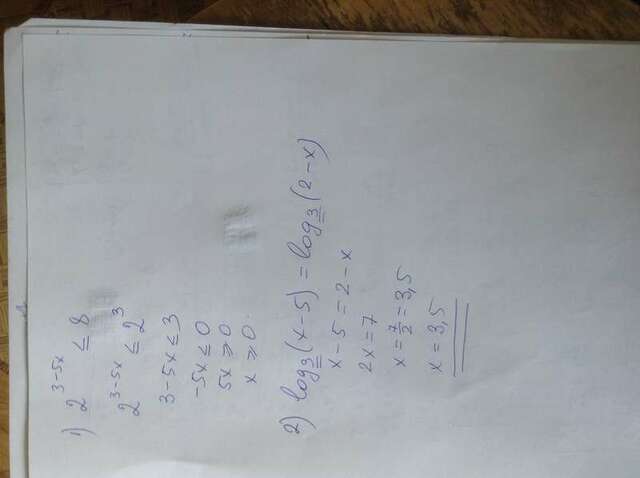 1) 2^{3-5x} ≤ 8
2^{3-5x} ≤ 2^3
3-5x ≤ 3
-5x ≤ 0
5x ≥ 0
x ≥ 0.
2) log_3(x-5) = log_3(2-x)
x-5 = 2-x
2x = 7
x = 7/2 = 3,5
x = 3,5